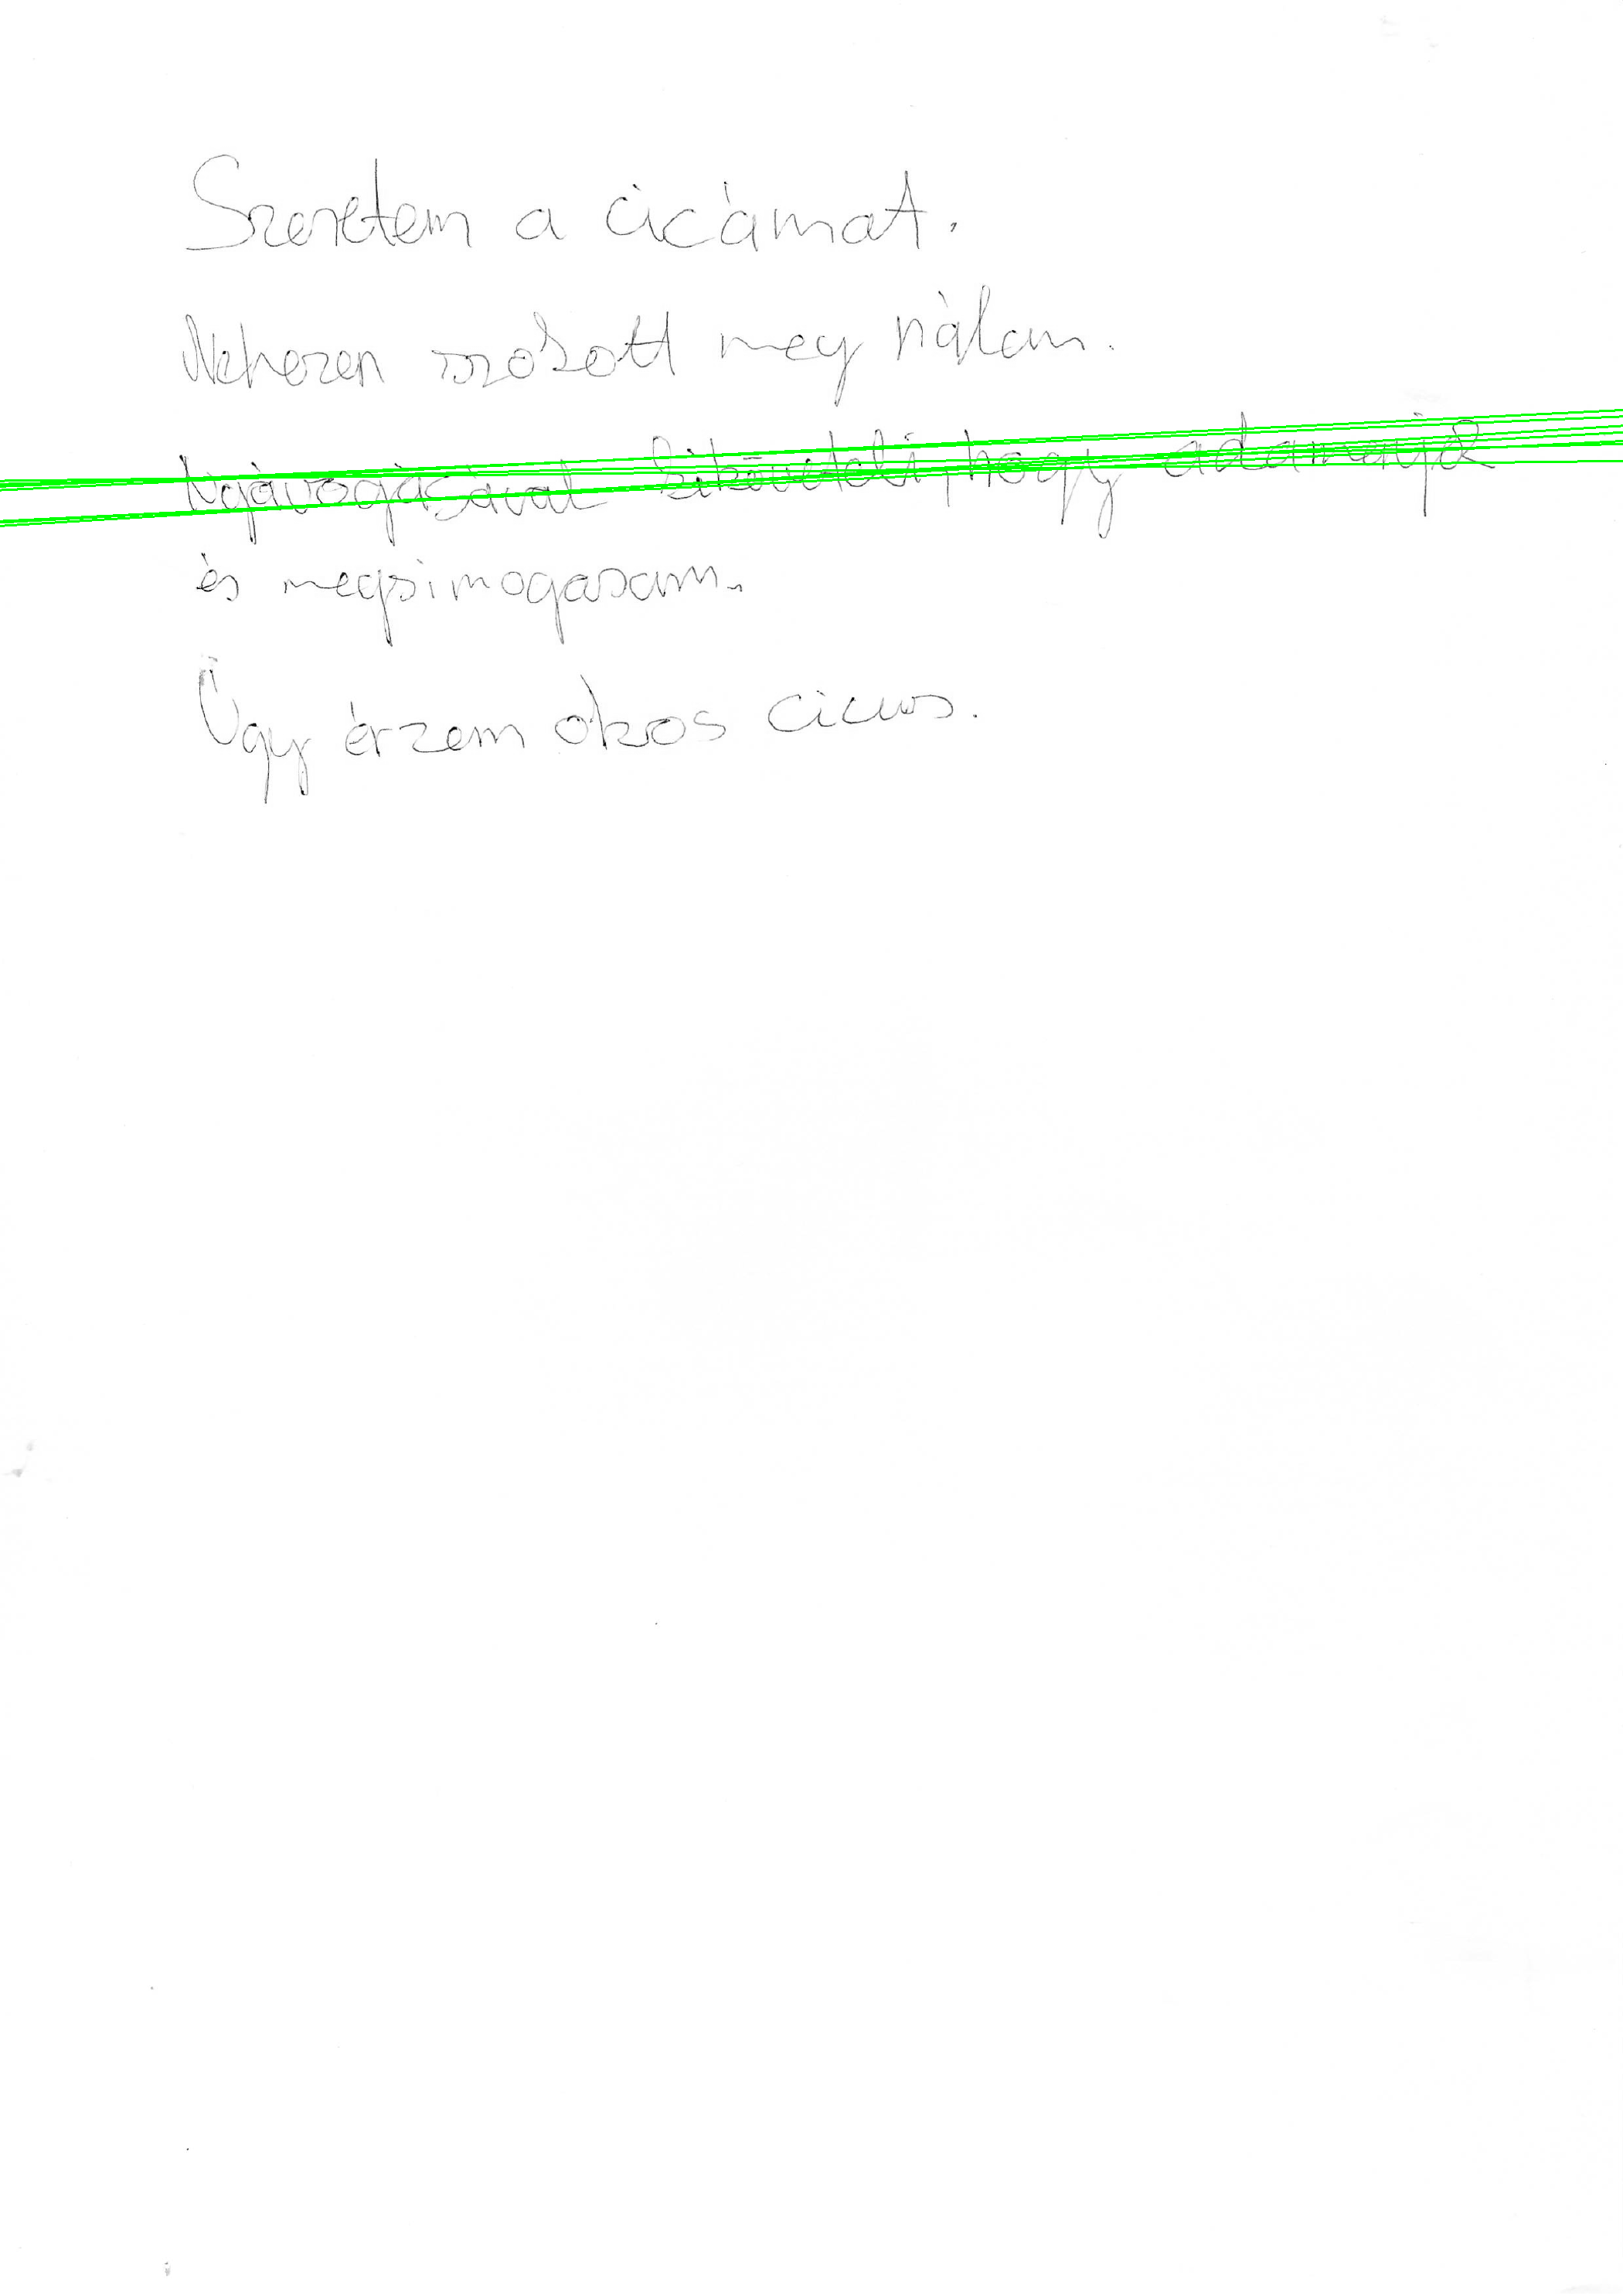 Szeretem a cicámat.
Nehezen szokott meg nálam.
Nyávogásával kiköveteli, hogy adjam
és megsimogassam.
Úgy érzem okos cicus.